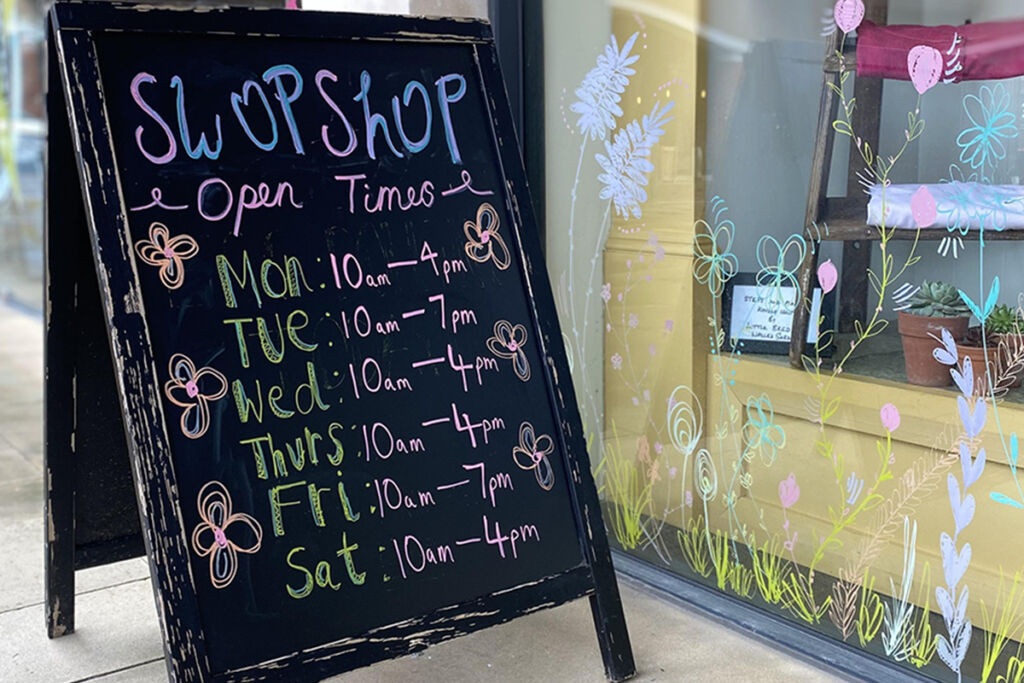 SWOPSHOP
Open Times
Mon: 10am – 4pm
Tue: 10am – 7pm
Wed: 10am – 4pm
Thurs: 10am – 4pm
Fri: 10am – 7pm
Sat: 10am – 4pm
BY
LITTLE BIRD